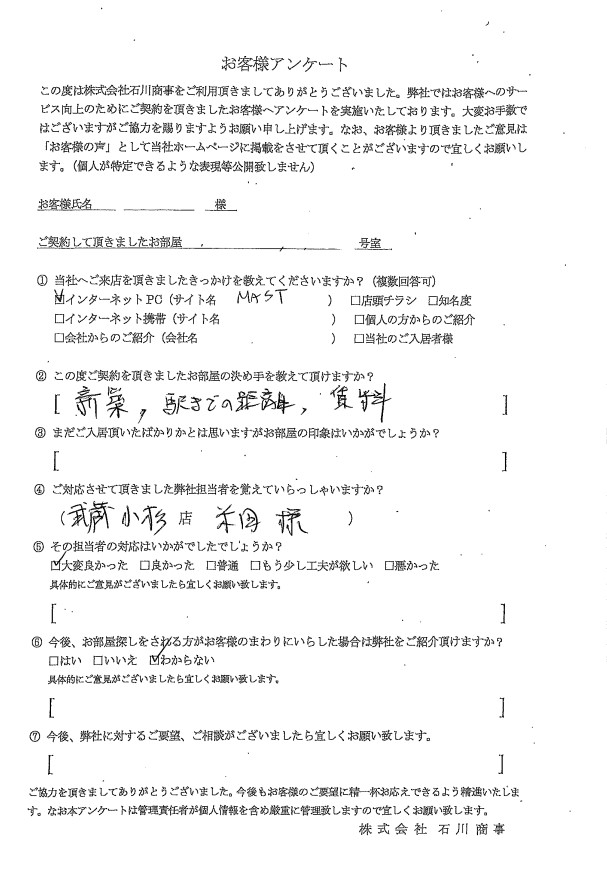 お客様アンケート
この度は株式会社石川商事をご利用頂きましてありがとうございました。弊社ではお客様へのサー
ビス向上のためにご契約を頂きましたお客様へアンケートを実施いたしております。大変お手数で
はございますがご協力を賜りますようお願い申し上げます。なお、お客様より頂きましたご意見は
「お客様の声」として当社ホームページに掲載をさせて頂くことがございますので宜しくお願いし
ます。（個人が特定できるような表現等公開致しません）
お客様氏名 様
ご契約して頂きましたお部屋 号室
① 当社へご来店を頂きましたきっかけを教えてくださいますか？（複数回答可）
☑インターネットPC（サイト名 MAST ） □店頭チラシ □知名度
□インターネット携帯（サイト名 ） □個人の方からのご紹介
□会社からのご紹介（会社名 ） □当社のご入居者様
② この度ご契約を頂きましたお部屋の決め手を教えて頂けますか？
[ 新築, 駅までの距離, 賃料 ]
③ まだご入居頂いたばかりかとは思いますがお部屋の印象はいかがでしょうか？
[ ]
④ ご対応させて頂きました弊社担当者を覚えていらっしゃいますか？
（武蔵小杉 店 米田 様 ）
⑤ その担当者の対応はいかがでしたでしょうか？
☑大変良かった □良かった □普通 □もう少し工夫が欲しい □悪かった
具体的にご意見がございましたら宜しくお願い致します。
[ ]
⑥ 今後、お部屋探しをされる方がお客様のまわりにいらした場合は弊社をご紹介頂けますか？
□はい □いいえ ☑わからない
具体的にご意見がございましたら宜しくお願い致します。
[ ]
⑦ 今後、弊社に対するご要望、ご相談がございましたら宜しくお願い致します。
[ ]
ご協力を頂きましてありがとうございました。今後もお客様のご要望に精一杯お応えできるよう精進いたしま
す。なお本アンケートは管理責任者が個人情報を含め厳重に管理致しますので宜しくお願い致します。
株式会社 石川商事